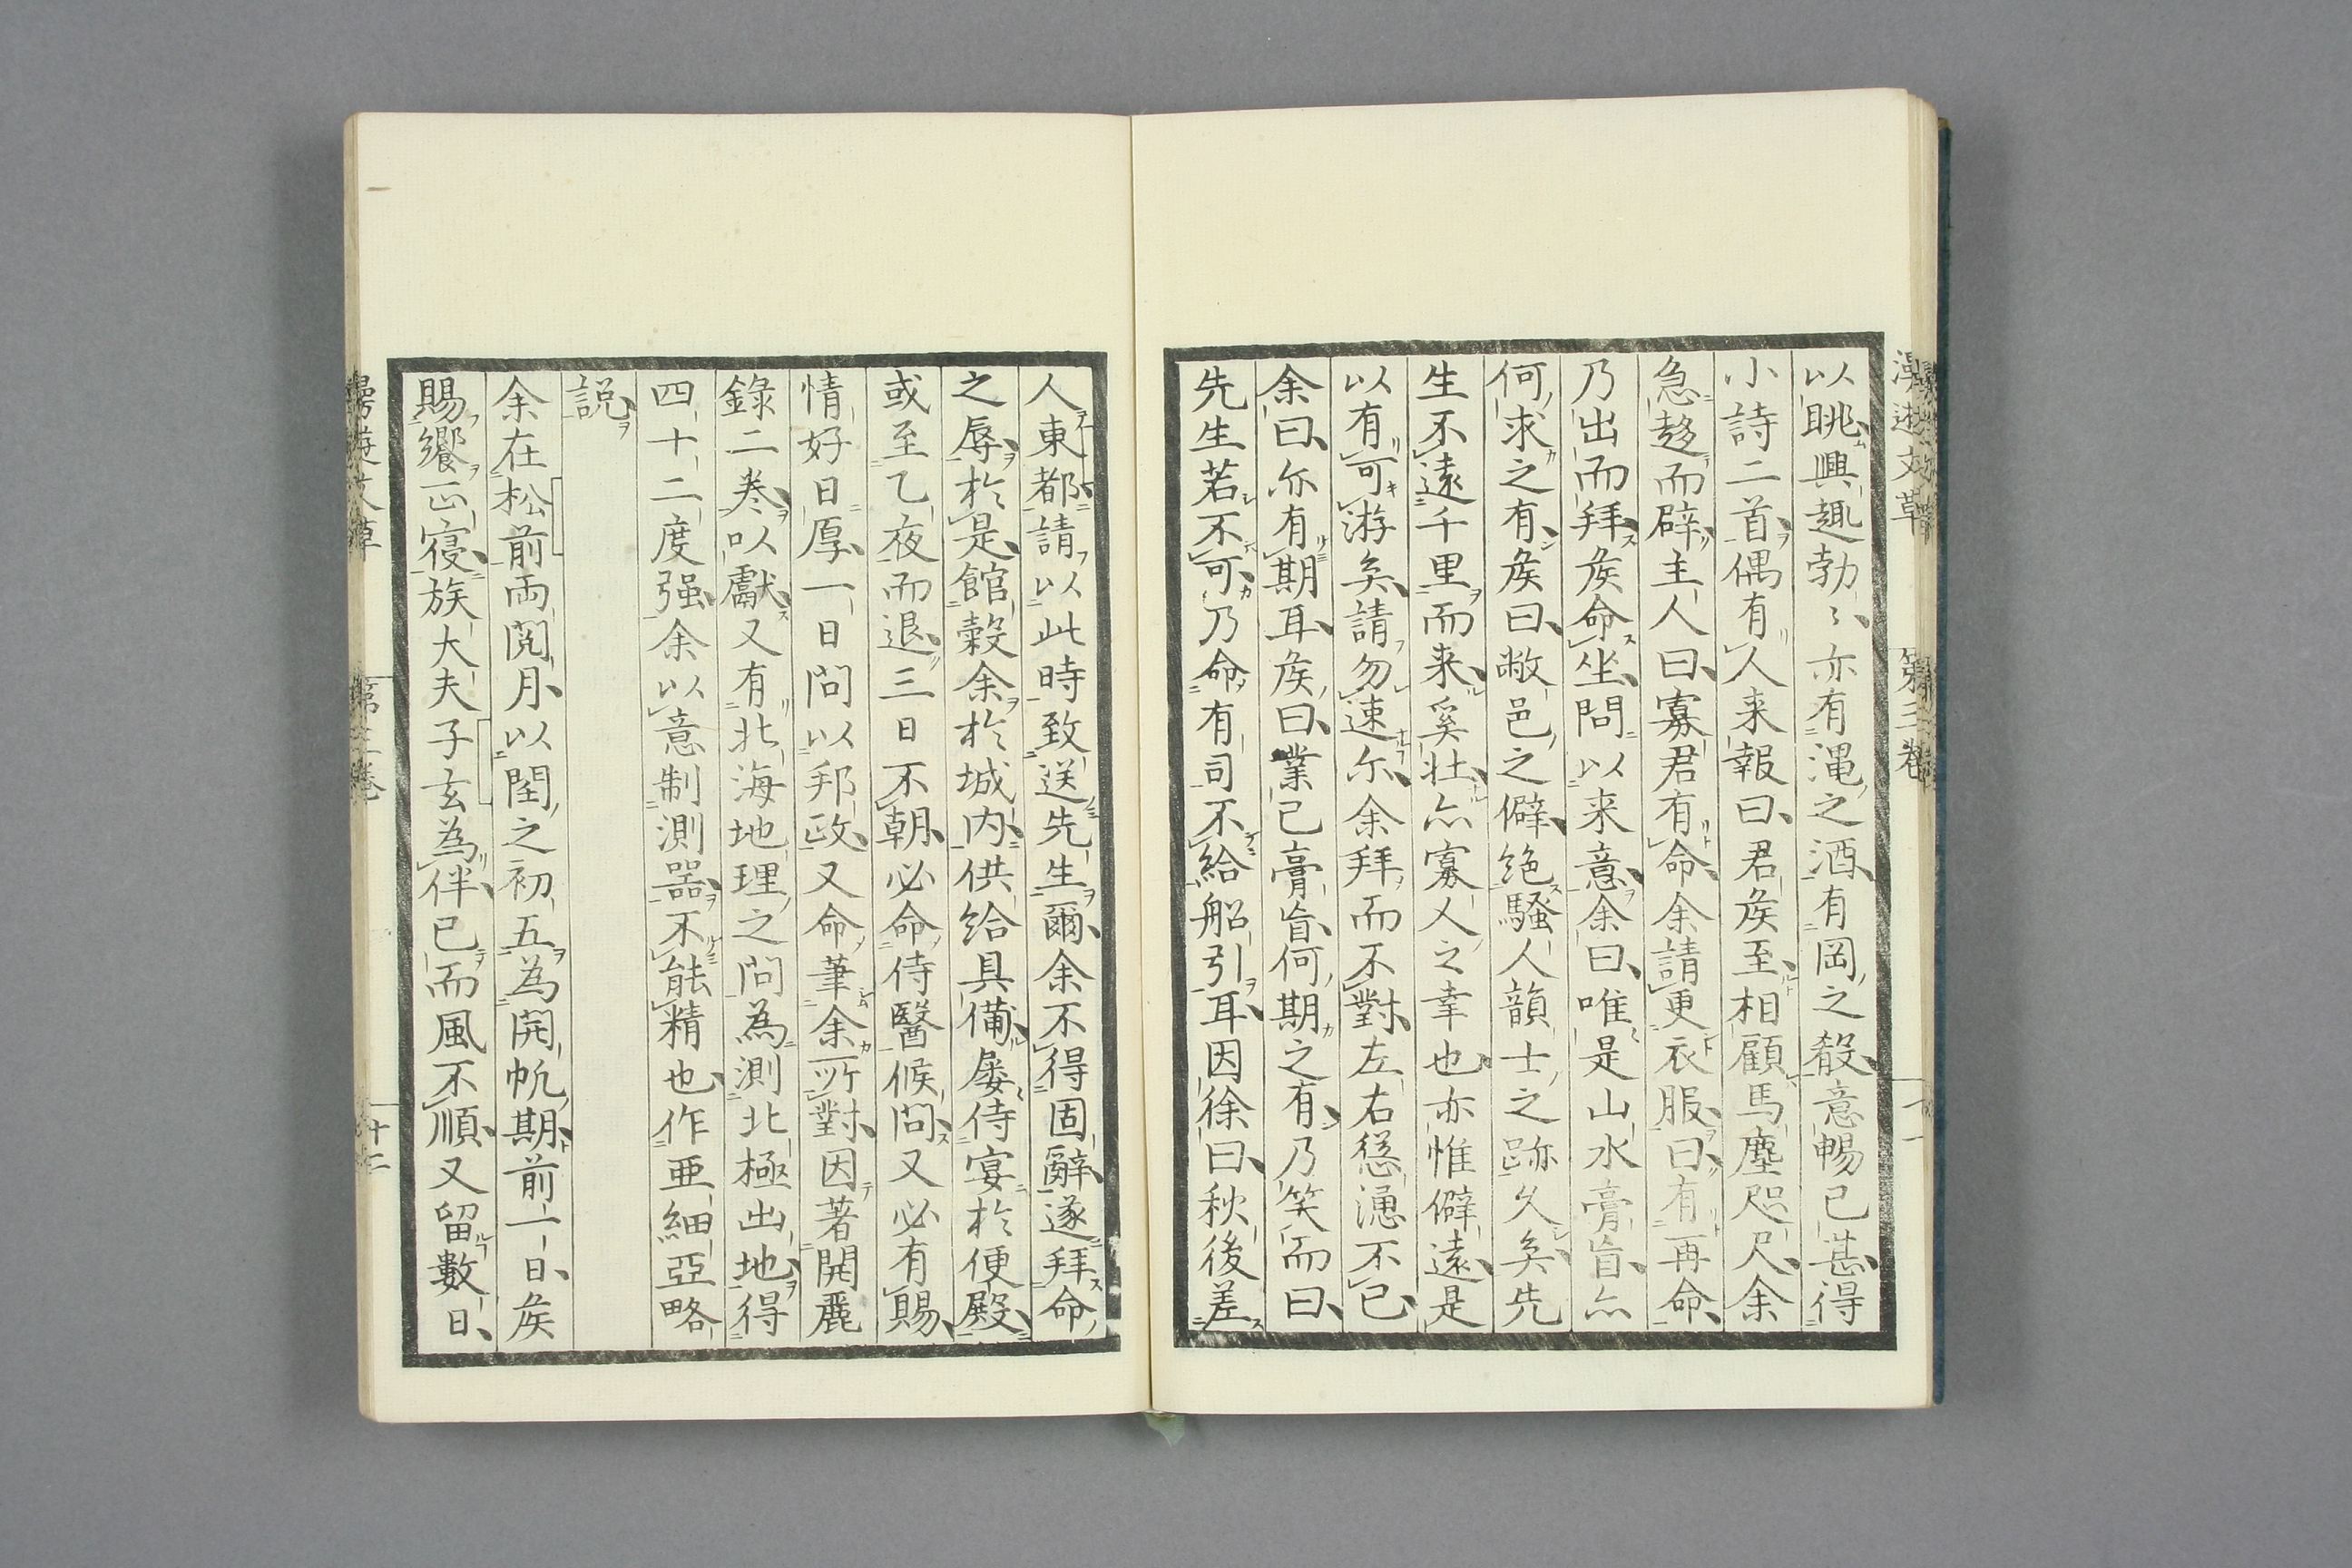 以眺興趣勃〻亦有澠之酒有岡之殽意暢已甚得
小詩二首偶有人来報曰君矦至相顧馬塵咫尺余
急趍而辟主人曰寡君有命余請更衣服曰有再命
乃出而拜矦命坐問以来意余曰唯是山水膏肓尒
何求之有矦曰敝邑之僻絶騷人韻士之跡久矣先
生不遠千里而来奚壮尒寡人之幸也亦惟僻遠是
以有可游矣請勿速尒余拜而不對左右慫慂不已
余曰亦有期耳矦曰業已膏肓何期之有乃笑而曰
先生若不可乃命有司不給船引耳因徐曰秋後差
人東都請以此時致送先生爾余不得固辭遂拜命
之辱於是館穀余於城内供給具備屡侍宴於便殿
或至乙夜而退三日不朝必命侍醫候問又必有賜
情好日厚一日問以邦政又命筆余所對因著開麗
錄二巻以獻又有北海地理之問為測北極出地得
四十二度强余以意制測器不能精也作亜細亞略
説
余在松前両閲月以閏之初五為開帆期前一日矦
賜饗正寝族大夫子玄為伴已而風不順又留數日
漫遊文草
第三巻
十二